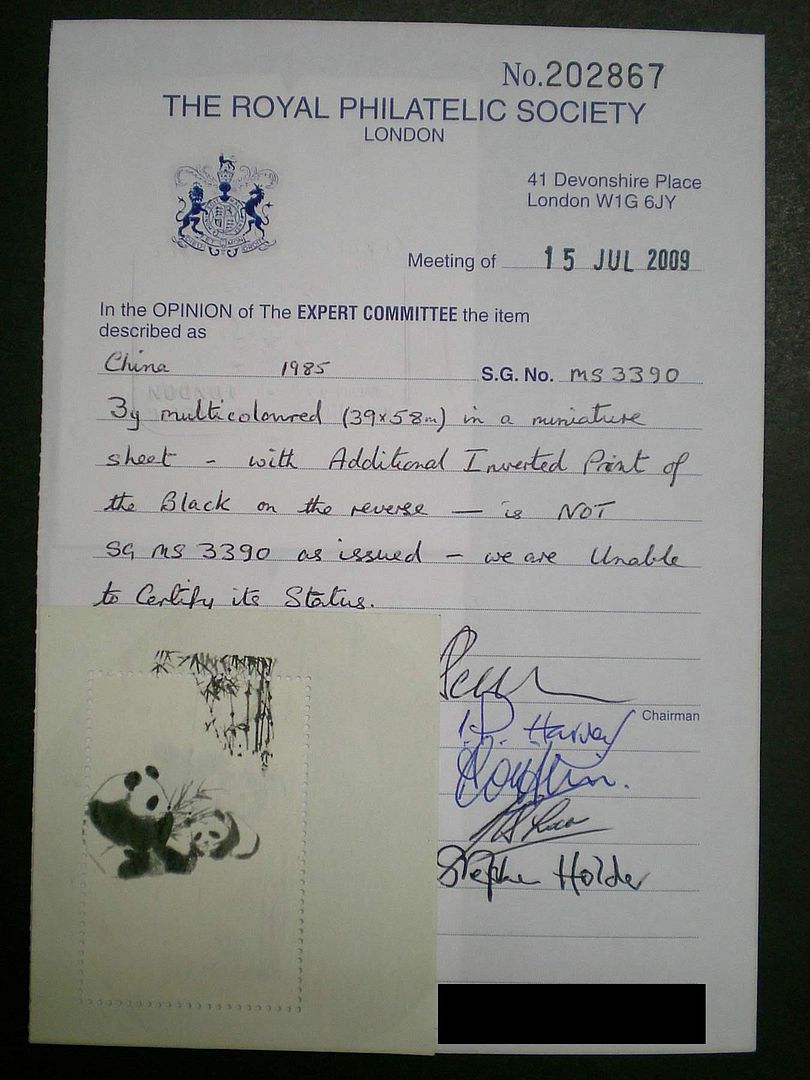 No.202867
THE ROYAL PHILATELIC SOCIETY
LONDON
41 Devonshire Place
London W1G 6JY
Meeting of 15 JUL 2009
In the OPINION of The EXPERT COMMITTEE the item
described as
China 1985 S.G. No. MS 3390
3y multicoloured (39x58m) in a miniature
sheet - with Additional Inverted Print of
the Black on the reverse — is NOT
SG MS 3390 as issued - we are Unable
to Certify its Status.
Chairman
Harvey
Stephen Holder